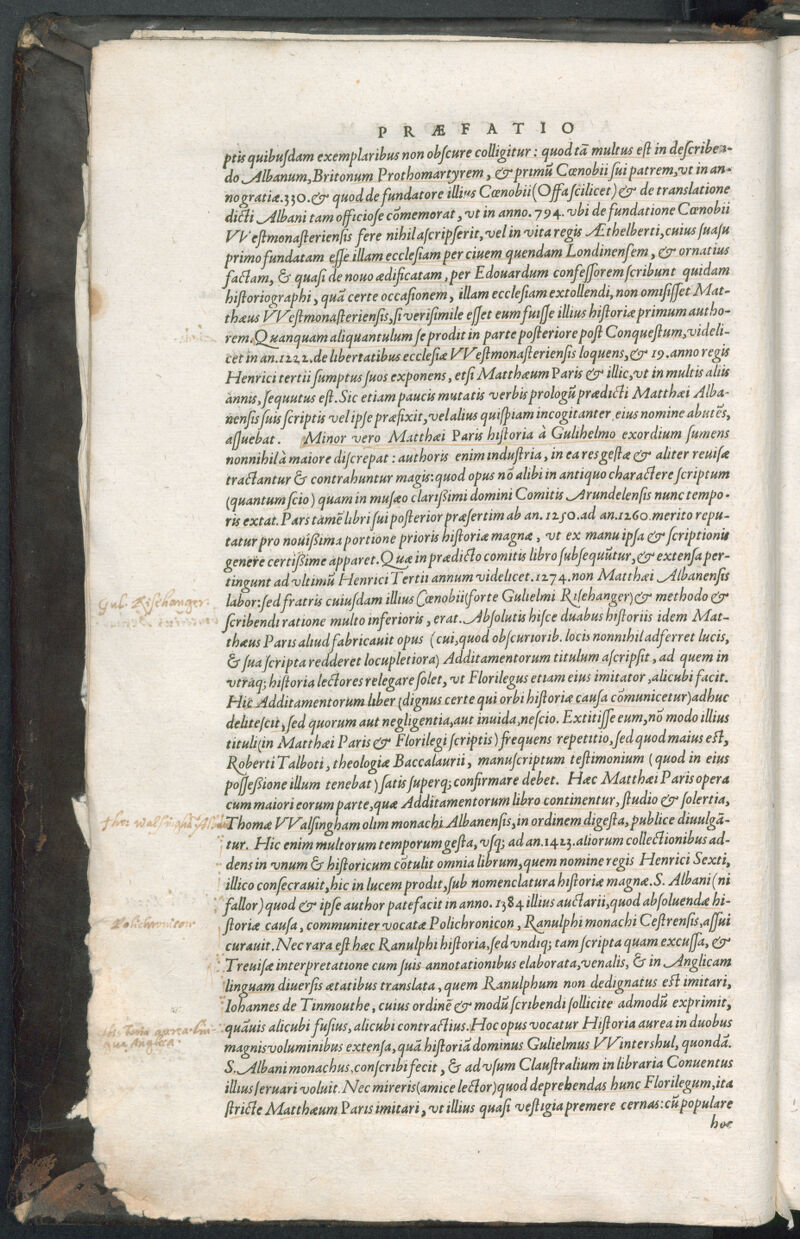 PRÆFATIO
ptis quibuſdam exemplaribus non obſcure colligitur: quod tā multus eſt in deſcribe-
do Albanum, Britonum Prothomartyrem, & primū Cœnobii ſui patrem, vt in an-
no gratiæ. 330. & quod de fundatore illius Cœnobii (Offa ſcilicet) & de translatione
dicti Albani tam officioſe cōmemorat, vt in anno. 794. vbi de fundatione Cœnobii
VVeſtmonaſterienſis fere nihil aſcripſerit, vel in vita regis Æthelberti, cuius ſuaſu
primo fundatam eſſe illam eccleſiam per ciuem quendam Londinenſem, & ornatius
factam, & quaſi de nouo ædificatam, per Edouardum confeſſorem ſcribunt quidam
hiſtoriographi, quā certe occaſionem, illam eccleſiam extollendi, non omiſiſſet Mat-
thæus VVeſtmonaſterienſis, ſi veriſimile eſſet eum fuiſſe illius hiſtoriæ primum autho-
rem. Quanquam aliquantulum ſe prodit in parte poſteriore poſt Conqueſtum, videli-
cet in an. 1222. de libertatibus eccleſiæ VVeſtmonaſterienſis loquens, & 19. anno regis
Henrici tertii ſumptus ſuos exponens, etſi Matthæum Paris & illic, vt in multis aliis
annis, ſequutus eſt. Sic etiam paucis mutatis verbis prologū prædicti Matthæi Alba-
nenſis ſuis ſcriptis vel ipſe præfixit, vel alius quiſpiam incogitanter eius nomine abutēs,
aſſuebat. Minor vero Matthæi Paris hiſtoria à Gulihelmo exordium ſumens
nonnihil à maiore diſcrepat: authoris enim induſtria, in ea res geſtæ & aliter reuiſæ
tractantur & contrahuntur magis: quod opus nō alibi in antiquo charactere ſcriptum
(quantum ſcio) quam in muſæo clariſſimi domini Comitis Arundelenſis nunc tempo-
ris extat. Pars tamē libri ſui poſterior præſertim ab an. 1250. ad an. 1260. merito repu-
tatur pro nouiſſima portione prioris hiſtoriæ magnæ, vt ex manu ipſa & ſcriptionis
genere certiſſime apparet. Quæ in prædicto comitis libro ſubſequūtur, & extenſa per-
tingunt ad vltimū Henrici Tertii annum videlicet. 1274. non Matthæi Albanenſis
Gul. Rishanger.
labor: ſed fratris cuiuſdam illius Cœnobii (forte Gulielmi Riſehanger) & methodo &
ſcribendi ratione multo inferioris, erat. Abſolutis hiſce duabus hiſtoriis idem Mat-
thæus Paris aliud fabricauit opus (cui, quod obſcuriorib. locis nonnihil adferret lucis,
& ſua ſcripta redderet locupletiora) Additamentorum titulum aſcripſit, ad quem in
vtraq; hiſtoria lectores relegare ſolet, vt Florilegus etiam eius imitator, alicubi facit.
Hic Additamentorum liber (dignus certe qui orbi hiſtoriæ cauſa cōmunicetur) adhuc
deliteſcit, ſed quorum aut negligentia, aut inuidia, neſcio. Extitiſſe eum, nō modo illius
tituli (in Matthæi Paris & Florilegi ſcriptis) frequens repetitio, ſed quod maius eſt,
Roberti Talboti, theologiæ Baccalaurii, manuſcriptum teſtimonium (quod in eius
poſſeſſione illum tenebat) ſatis ſuperq; confirmare debet. Hæc Matthæi Paris opera
cum maiori eorum parte, quæ Additamentorum libro continentur, ſtudio & ſolertia,
Thomæ VValſingham olim monachi Albanenſis, in ordinem digeſta, publice diuulgā-
tur. Hic enim multorum temporum geſta, vſq; ad an. 1423. aliorum collectionibus ad-
dens in vnum & hiſtoricum cōtulit omnia librum, quem nomine regis Henrici Sexti,
illico conſecrauit, hic in lucem prodit, ſub nomenclatura hiſtoriæ magnæ. S. Albani (ni
fallor) quod & ipſe author patefacit in anno. 1384 illius auctarii, quod abſoluendæ hi-
Polichronicon
ſtoriæ cauſa, communiter vocatæ Polichronicon, Ranulphi monachi Ceſtrenſis, aſſui
curauit. Nec rara eſt hæc Ranulphi hiſtoria, ſed vndiq; tam ſcripta quam excuſſa, &
Treuiſæ interpretatione cum ſuis annotationibus elaborata, venalis, & in Anglicam
linguam diuerſis ætatibus translata, quem Ranulphum non dedignatus eſt imitari,
Iohannes de Tinmouthe, cuius ordinē & modū ſcribendi ſollicite admodū exprimit,
quāuis alicubi fuſius, alicubi contractius. Hoc opus vocatur Hiſtoria aurea in duobus
magnis voluminibus extenſa, quā hiſtoriā dominus Gulielmus VVintershul, quondā.
S. Albani monachus, conſcribi fecit, & ad vſum Clauſtralium in libraria Conuentus
illius ſeruari voluit. Nec mireris (amice lector) quod deprehendas hunc Florilegum, ita
ſtricte Matthæum Paris imitari, vt illius quaſi veſtigia premere cernas: cū populare
hoc